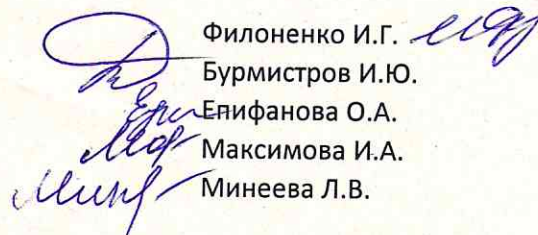 Филоненко И.Г.
Бурмистров И.Ю.
Епифанова О.А.
Максимова И.А.
Минеева Л.В.